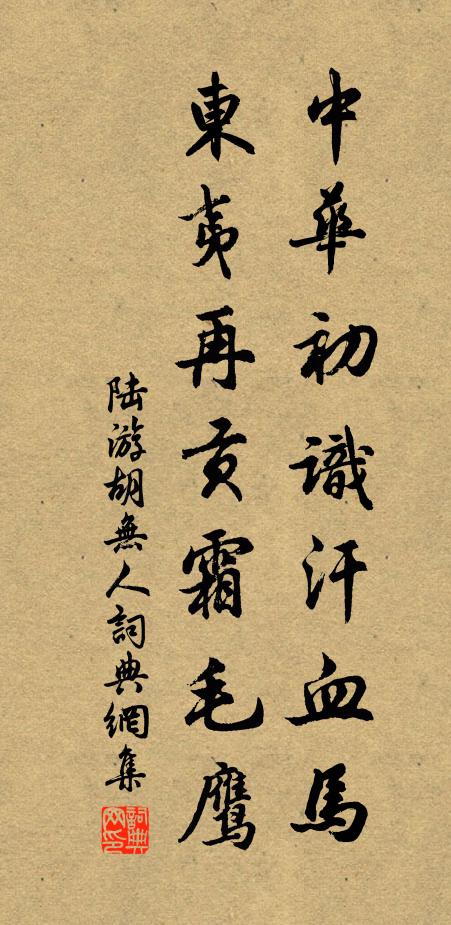 中華初識汗血馬
東夷再貢霜毛鷹
陆游胡無人詞典網集
詞典网印